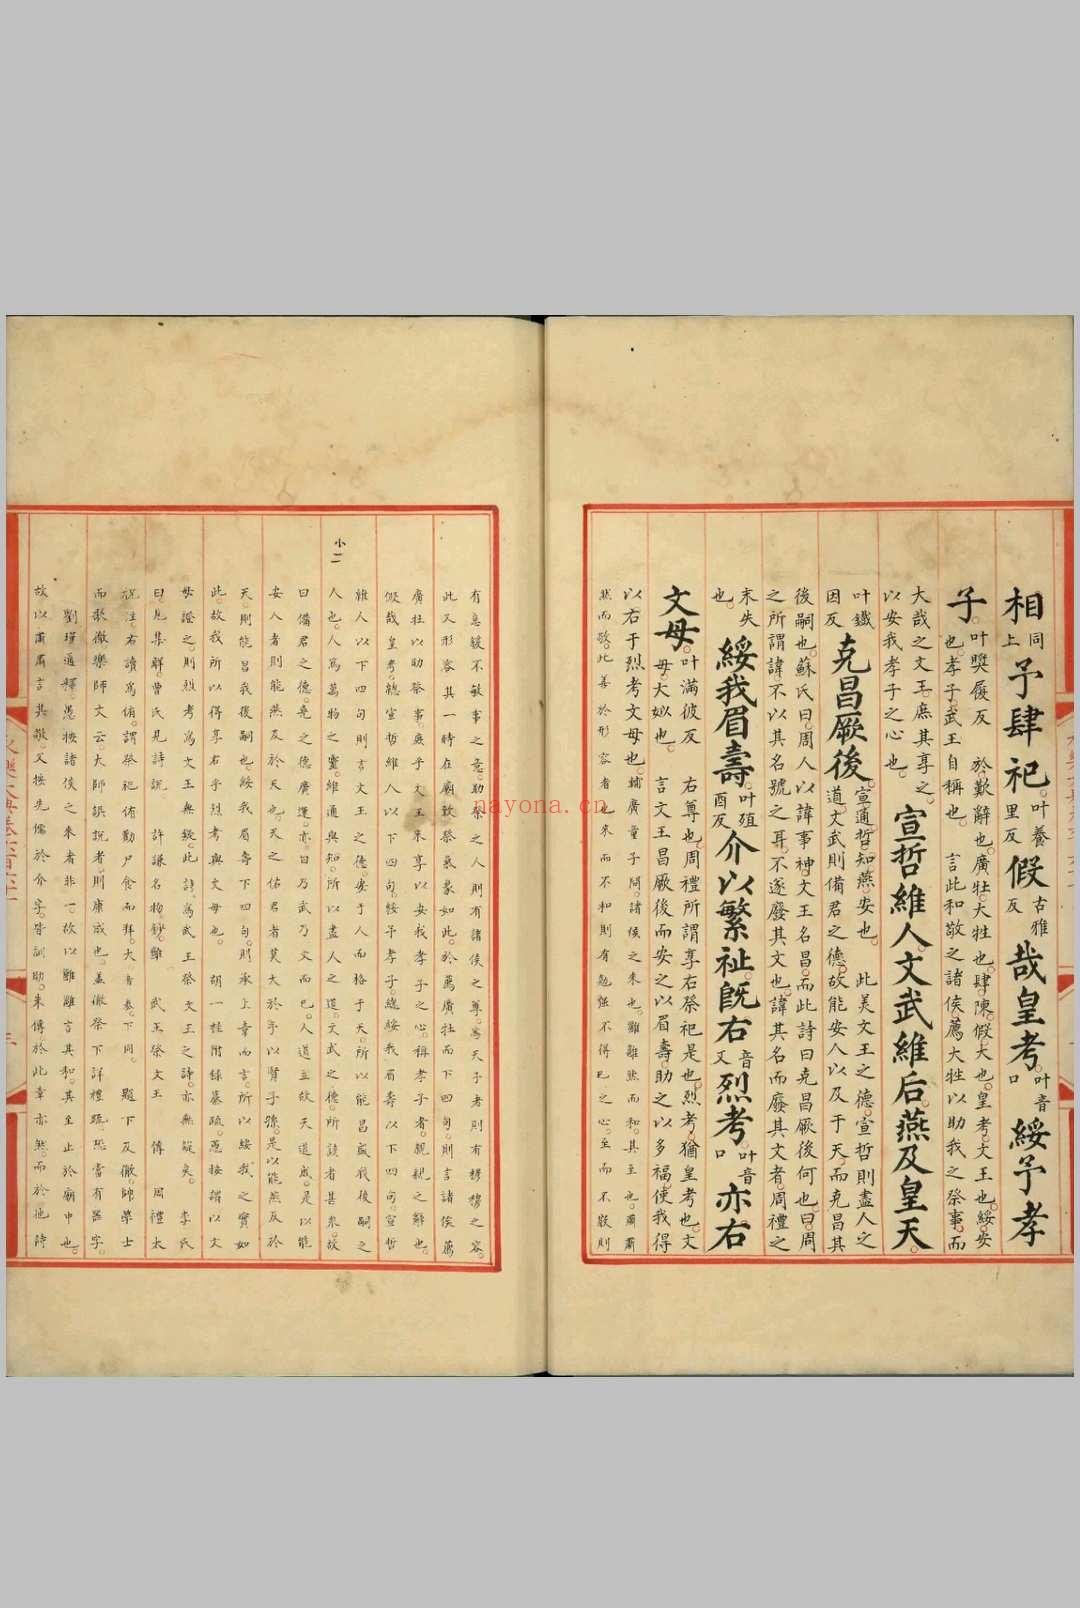 相同上予肆祀叶養里反假古雅反哉皇考叶音口綏予孝
子叶獎履反　於歎辭也廣牡大牲也肆陳假大也皇考文王也綏安
也孝子武王自稱也　言此和敬之諸侯薦大牲以助我之祭事而
大哉之文王庶其享之
以安我孝子之心也　宣哲維人文武維后燕及皇天
叶鐵因反克昌厥後宣通哲知燕安也　此美文王之德宣哲則盡人之
道文武則備君之德故能安人以及于天而克昌其
後嗣也蘇氏曰周人以諱事神文王名昌而此詩曰克昌厥後何也曰周
之所謂諱不以其名號之耳不遂廢其文也諱其名而廢其文者周禮之
末失也　綏我眉壽叶殖酉反介以繁祉既右音又烈考叶音口亦右
文母叶滿彼反　右尊也周禮所謂享右祭祀是也烈考猶皇考也文
母大姒也　言文王昌厥後而安之以眉壽助之以多福使我得
以右于烈考文母也輔廣童子問諸侯之來也雝雝然而和其至也肅肅
然而敬此善於形容者也來而不和則有勉強不得已之心至而不敬則
有怠緩不敏事之意助祭之人則有諸侯之尊為天子者則有穆穆之容
此又形容其一時在廟致祭氣象如此於薦廣牡而下四句則言諸侯薦
廣牡以助祭事庶乎文王來享以安我孝子之心稱孝子者親親之辭也
假哉皇考總宣哲維人以下四句綏予孝子總綏我眉壽以下四句宣哲
維人以下四句則言文王之德安于人而格于天所以能昌盛我後嗣之
人也人為萬物之靈維通與知所以盡人之道文武之德所該者甚衆故
曰備君之德堯之德廣運亦曰乃武乃文而已人道立故天道成是以能
安人者則能燕及於天也天之佑君者莫大於予以賢子孫是以能燕及於
天則能昌我後嗣也綏我眉壽下四句則承上章而言所以綏我之實如
此故我所以得享右乎烈考與文母也　胡一桂附錄纂疏愚按揩以文
母證之則烈考為文王無疑此詩為武王祭文王之詩亦無疑矣　李氏
曰見集解曹氏見詩說　許謙名物鈔雝　武王祭文王　傳　周禮太
祝注右讀為侑謂祭祀侑勸尸食而拜大音泰下同　題下及徹帥學士
而歌徹樂師文云大師誤說者則康成也蓋徹祭下詳禮題恐當有器字
劉瑾通釋愚按諸侯之來者非一故以雝雝言其和其至止於廟中也
故以肅肅言其敬又按先儒於介字皆訓助朱傳於此章亦然而於他詩
小二
nayona.cn